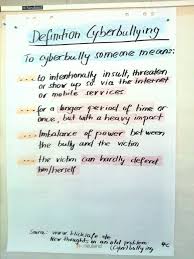 Definition Cyberbullying
To cyberbully someone means:
... to intentionally insult, threaten
or show up so. via the internet
or mobile services
... for a longer period of time or
once, but with a heavy impact
... imbalance of power between
the bully and the victim
... the victim can hardly defend
her/himself
Source: www.klicksafe.de
New thoughts in an old problem
(Cyberbullying